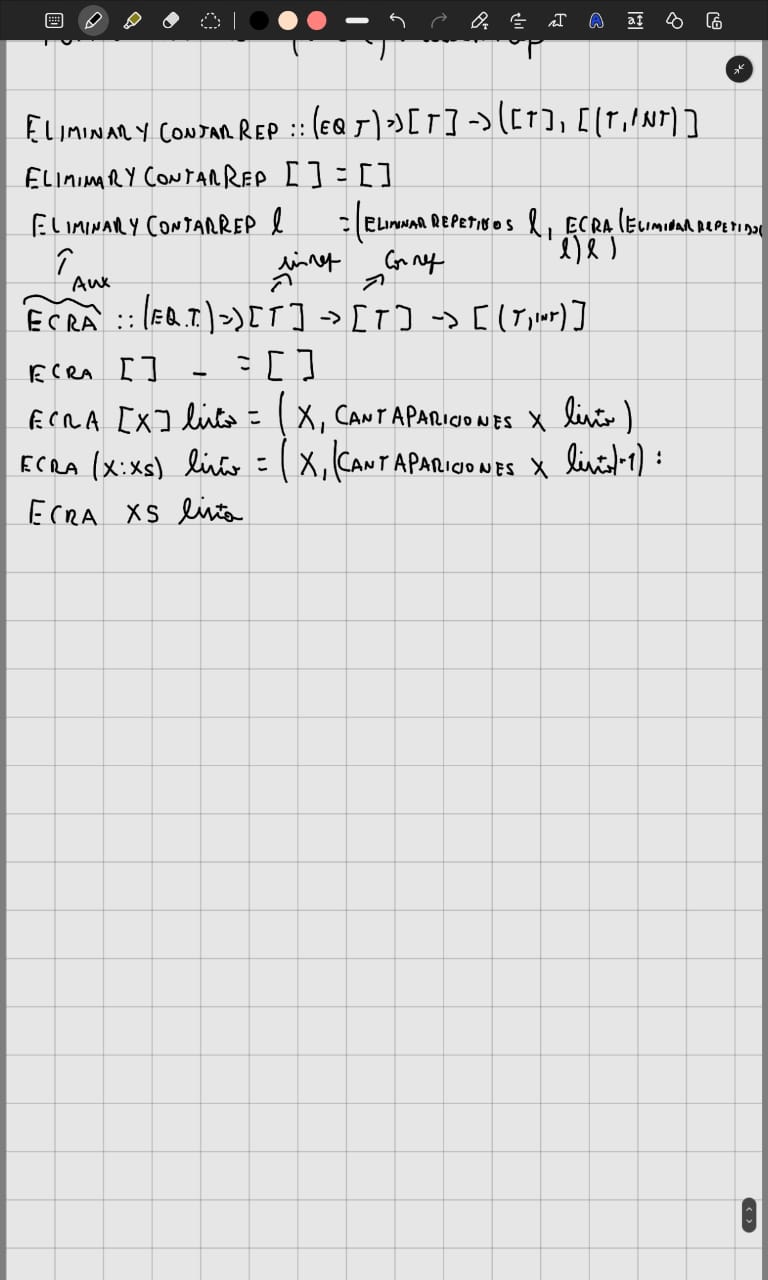 ELIMINARYCONTARREP :: (EQ T) => [T] -> ([T], [(T,INT)]
ELIMINARYCONTARREP [] = []
ELIMINARYCONTARREP l = (ELIMINARREPETIDOS l, ECRA (ELIMINARREPETIDOS
l) l )
AUX sin rep Con rep
ECRA :: (EQ.T.) => [T] -> [T] -> [(T,INT)]
ECRA [] _ = []
ECRA [X] lista = (X, CANTAPARICIONES X lista)
ECRA (X:XS) lista = (X, (CANTAPARICIONES X lista)-1) :
ECRA XS lista